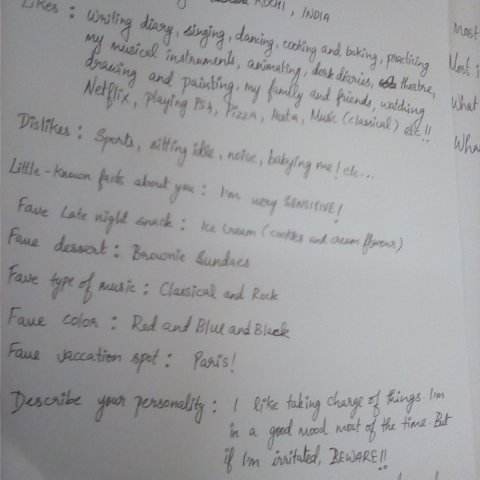 KOCHI, INDIA
Likes : Writing diary, singing, dancing, cooking and baking, practicing
my musical instruments, animating, dork diaries, theatre,
drawing and painting, my family and friends, watching
Netflix, playing PS4, Pizza, Pasta, Music (classical) etc!!
Dislikes : Sports, sitting idle, noise, babying me! etc...
Little-known facts about you : I'm very SENSITIVE!
Fave Late night snack : Ice Cream (cookies and cream flavour)
Fave dessert : Brownie Sundaes
Fave type of music : Classical and Rock
Fave color : Red and Blue and Black
Fave vaccation spot : Paris!
Describe your personality : I like taking charge of things I'm
in a good mood most of the time. But
if I'm irritated, BEWARE!!
Most
Most i
What
Wha